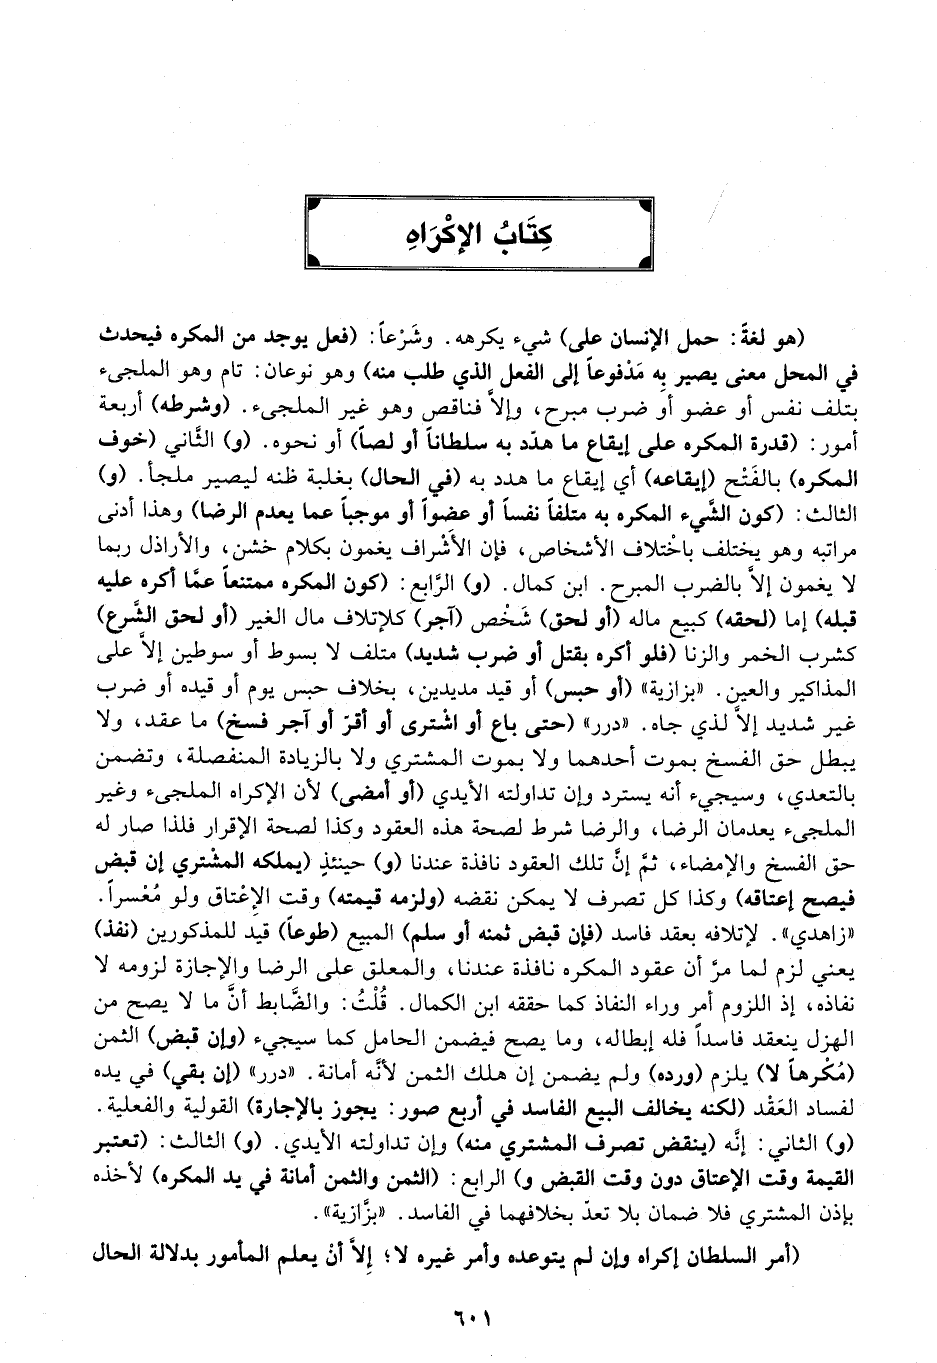 كِتَابُ الإكْرَاهِ
(هو لغةً: حمل الإنسان على) شيء يكرهه. وشَرْعاً: (فعل يوجد من المكره فيحدث
في المحل معنى يصير بِه مَدْفوعاً إلى الفعل الذي طلب منه) وهو نوعان: تام وهو الملجىء
بتلف نفس أو عضو أو ضرب مبرح، وإلاَّ فناقص وهو غير الملجىء. (وشرطه) أربعة
أمور: (قدرة المكره على إيقاع ما هدّد به سلطاناً أو لصاً) أو نحوه. (و) الثَّاني (خوف
المكره) بالفَتْح (إيقاعه) أي إيقاع ما هدد به (في الحال) بغلبة ظنه ليصير ملجأ. (و)
الثالث: (كون الشَّيء المكره به متلفاً نفساً أو عضواً أو موجباً عما يعدم الرضا) وهذا أدنى
مراتبه وهو يختلف باختلاف الأشخاص، فإن الأَشْراف يغمون بكلام خشن، والأراذل ربما
لا يغمون إلاَّ بالضرب المبرح. ابن كمال. (و) الرَّابع: (كون المكره ممتنعاً عمَّا أكره عليه
قبله) إما (لحقه) كبيع ماله (أو لحق) شَخْص (آجر) كلإتلاف مال الغير (أو لحق الشَّرع)
كشرب الخمر والزنا (فلو أكره بقتل أو ضرب شديد) متلف لا بسوط أو سوطين إلاَّ على
المذاكير والعين. «بزازية» (أو حبس) أو قيد مديدين، بخلاف حبس يوم أو قيده أو ضرب
غير شديد إلاَّ لذي جاه. «درر» (حتى باع أو اشْترى أو أقرّ أو آجر فسخ) ما عقد، ولا
يبطل حق الفسخ بموت أحدهما ولا بموت المشتري ولا بالزيادة المنفصلة، وتضمن
بالتعدي، وسيجيء أنه يسترد وإن تداولته الأيدي (أو أمضى) لأن الإكراه الملجىء وغير
الملجىء يعدمان الرضا، والرضا شرط لصحة هذه العقود وكذا لصحة الإقرار فلذا صار له
حق الفسخ والإمضاء، ثمَّ إنَّ تلك العقود نافذة عندنا (و) حينئذٍ (يملكه المشْتري إن قبض
فيصح إعتاقه) وكذا كل تصرف لا يمكن نقضه (ولزمه قيمته) وقت الإِعْتاق ولو مُعْسراً.
«زاهدي». لإتلافه بعقد فاسد (فإن قبض ثمنه أو سلم) المبيع (طوعاً) قيد للمذكورين (نفذ)
يعني لزم لما مرَّ أن عقود المكره نافذة عندنا، والمعلق على الرضا والإجازة لزومه لا
نفاذه، إذ اللزوم أمر وراء النفاذ كما حققه ابن الكمال. قُلْتُ: والضَّابط أنَّ ما لا يصح من
الهزل ينعقد فاسداً فله إبطاله، وما يصح فيضمن الحامل كما سيجيء (وإن قبض) الثمن
(مُكْرهاً لا) يلزم (ورده) ولم يضمن إن هلك الثمن لأنَّه أمانة. «درر» (إن بقي) في يده
لفساد العَقْد (لكنه يخالف البيع الفاسد في أربع صور: يجوز بالإجارة) القولية والفعلية.
(و) الثاني: إنَّه (ينقض تصرف المشتري منه) وإن تداولته الأيدي. (و) الثالث: (تعتبر
القيمة وقت الإعتاق دون وقت القبض و) الرابع: (الثمن والثمن أمانة في يد المكره) لأخذه
بإذن المشتري فلا ضمان بلا تعدّ بخلافهما في الفاسد. «بزَّازية».
(أمر السلطان إكراه وإن لم يتوعده وأمر غيره لا؛ إِلاَّ أنْ يعلم المأمور بدلالة الحال
٦٠١